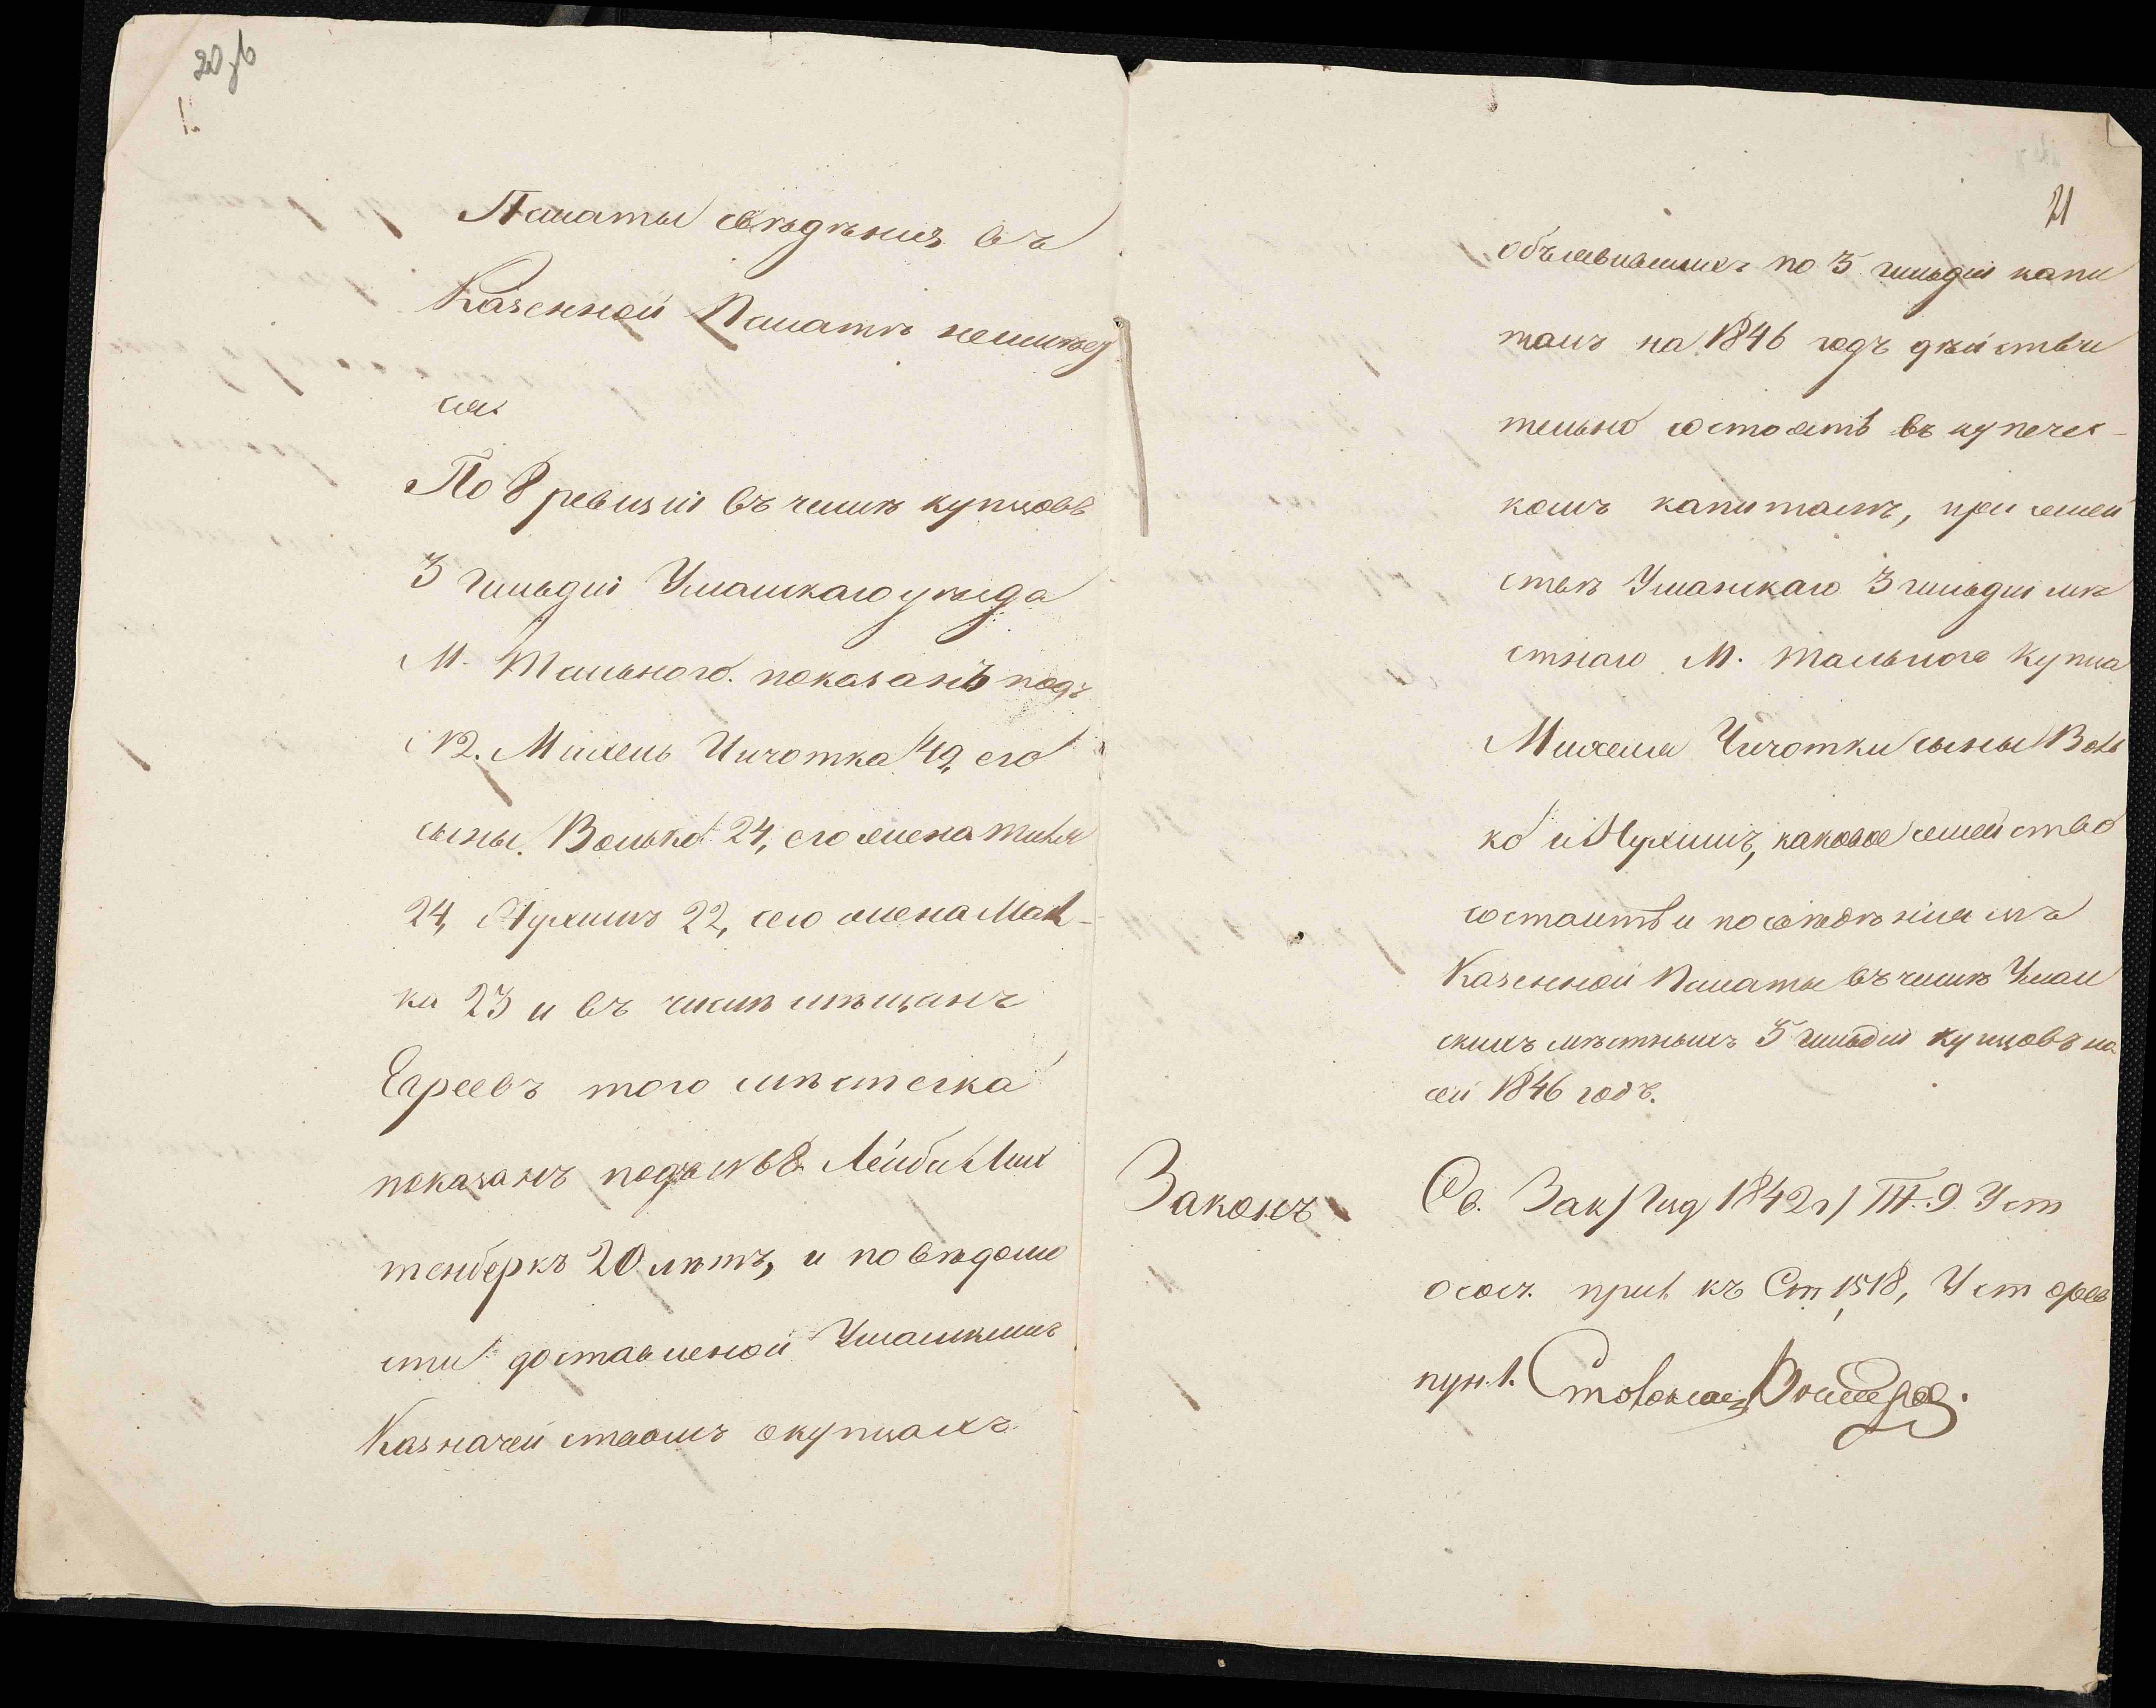 20 об
Палаты свѣдѣнія въ
Казенной Палатѣ неимѣет
ся.
По 8 ревизіи въ числѣ купцовъ
3 гильдіи Уманскаго уѣзда
М. Тального показанъ подъ
№ 2. Михель Чичотка 49, его
сыны Волько 24, его жена
24, Нухимъ 22, его жена Мал-
ка 23 и въ числѣ мѣщанъ
Евреевъ того мѣстечка
показанъ подъ № 68. Лейба Лих
тенберкъ 20 лѣтъ, и по вѣдомо
сти доставленой Уманскимъ
Казначействомъ о купцахъ
21
объявившихъ по 3 гильдіи капи
талъ на 1846 годъ дѣйстви
тельно состоятъ въ купечес-
комъ капиталѣ, при семей
ствѣ Уманскаго 3 гильдіи мѣ
стнаго М. Тального Купца
Михеля Чичотки сыны Воль
ко и Нухимъ, каковое семейство
состоитъ и по свѣдѣніямъ
Казенной Палаты въ числѣ Уман
скихъ мѣстныхъ 3 гильдіи купцовъ на
сей 1846 годъ.
Законъ
Св. Зак. /Изд 1842 г/ Т. 9. Уст
о сос. прил. къ Ст 1518, Уст о рев
пун. 1. Столонач.